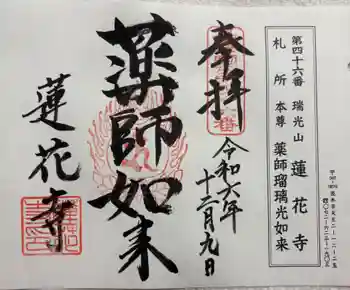 第四十六番 瑞光山 蓮花寺
札所 本尊 薬師瑠璃光如来
奉拝
令和六年
十二月九日
薬師如来
蓮花寺